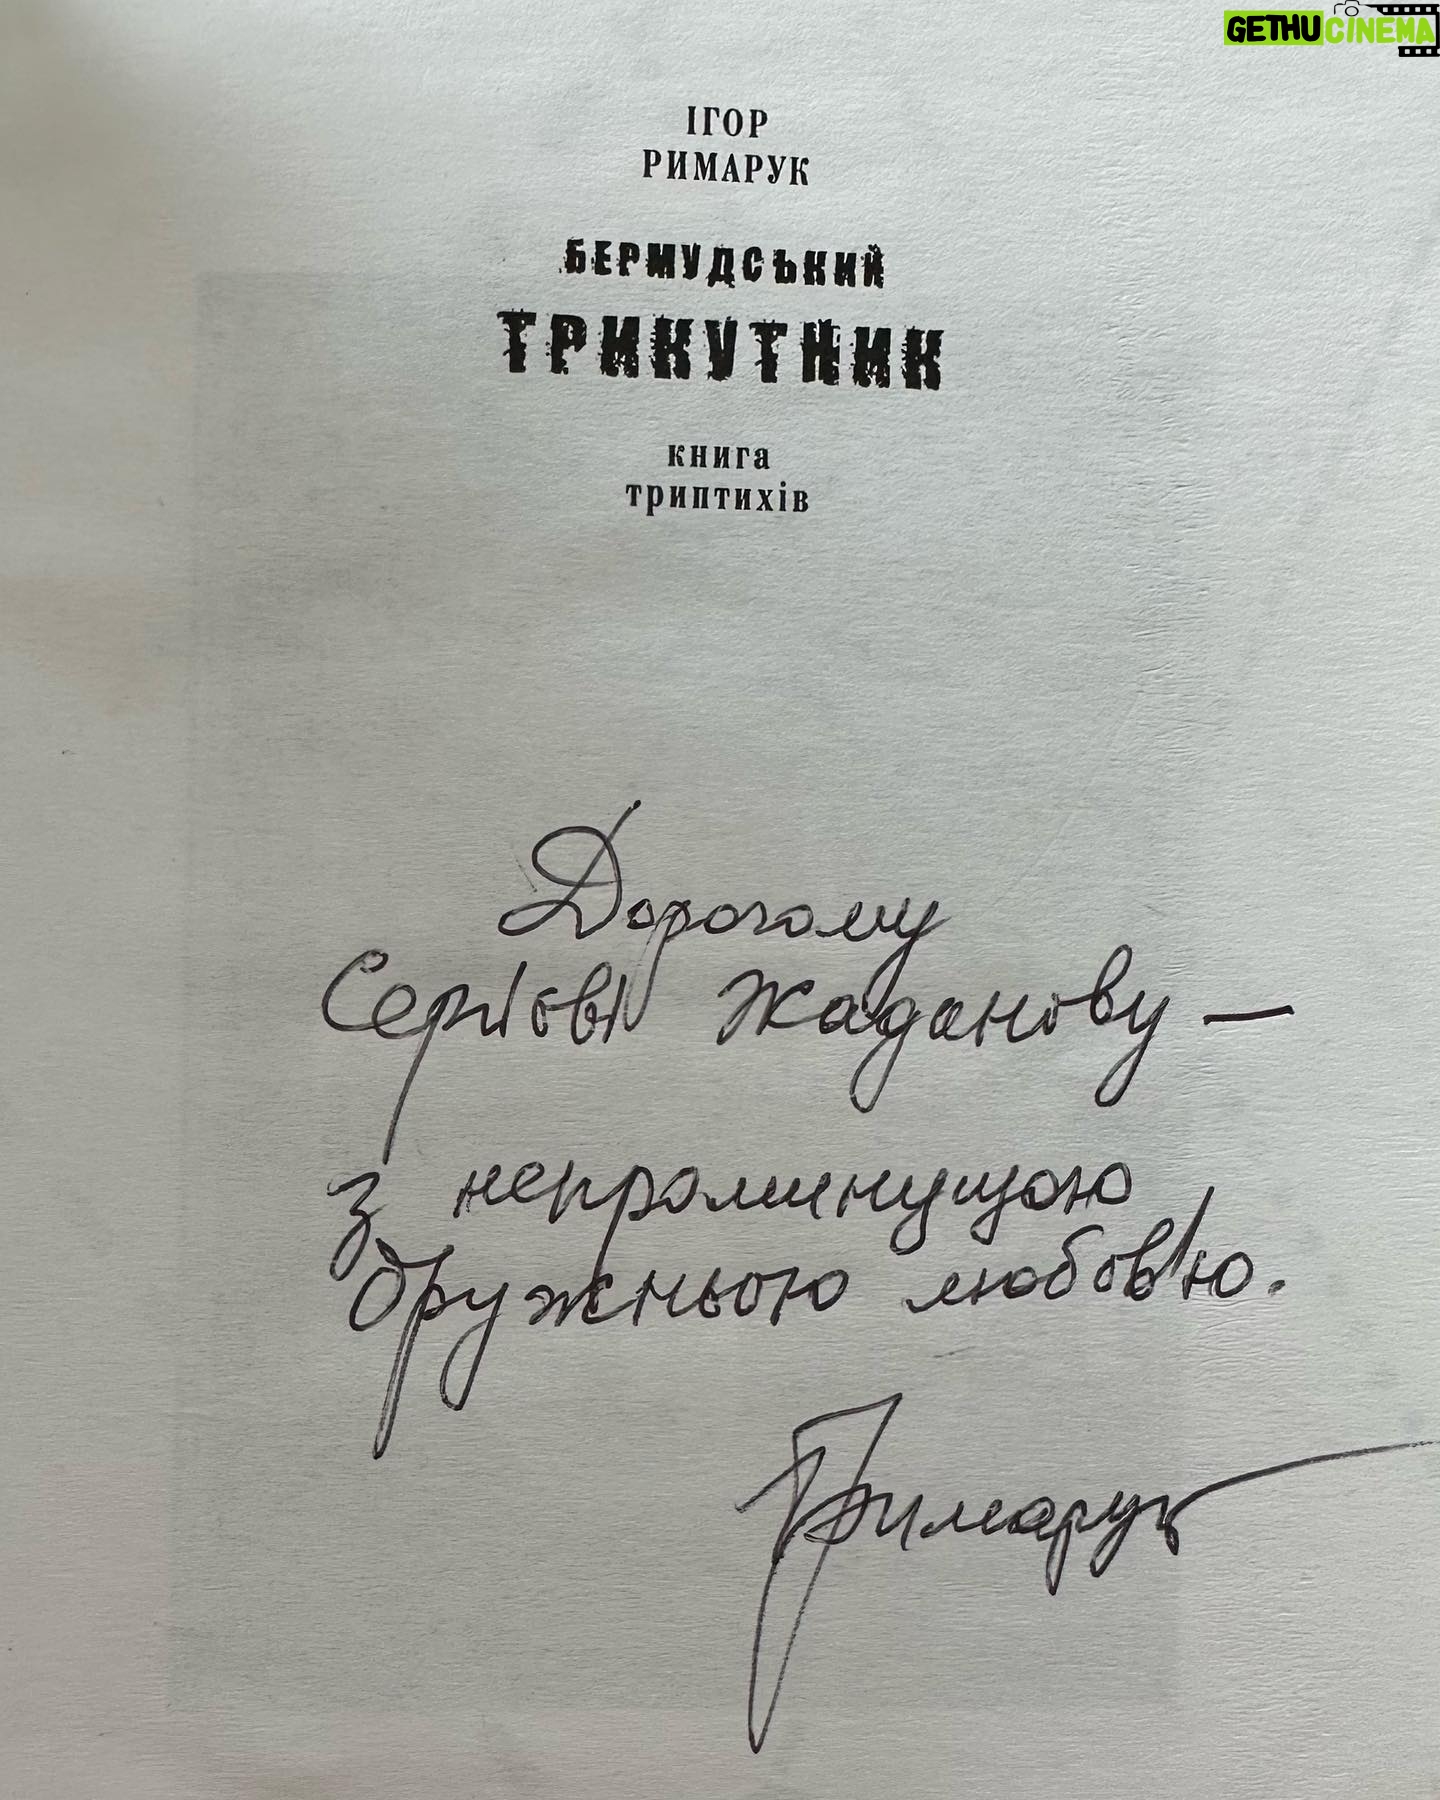 GETHUCINEMA
ІГОР
РИМАРУК
БЕРМУДСЬКИЙ
ТРИКУТНИК
книга
триптихів
Дорогому
Сергієві Жаданову —
з непроминущою
дружньою любов'ю.
Римарук